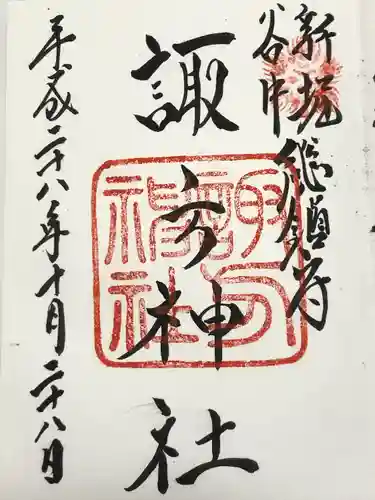 新堀
谷中総鎮守
諏方神社
諏方神社
平成二十八年十月二十八日